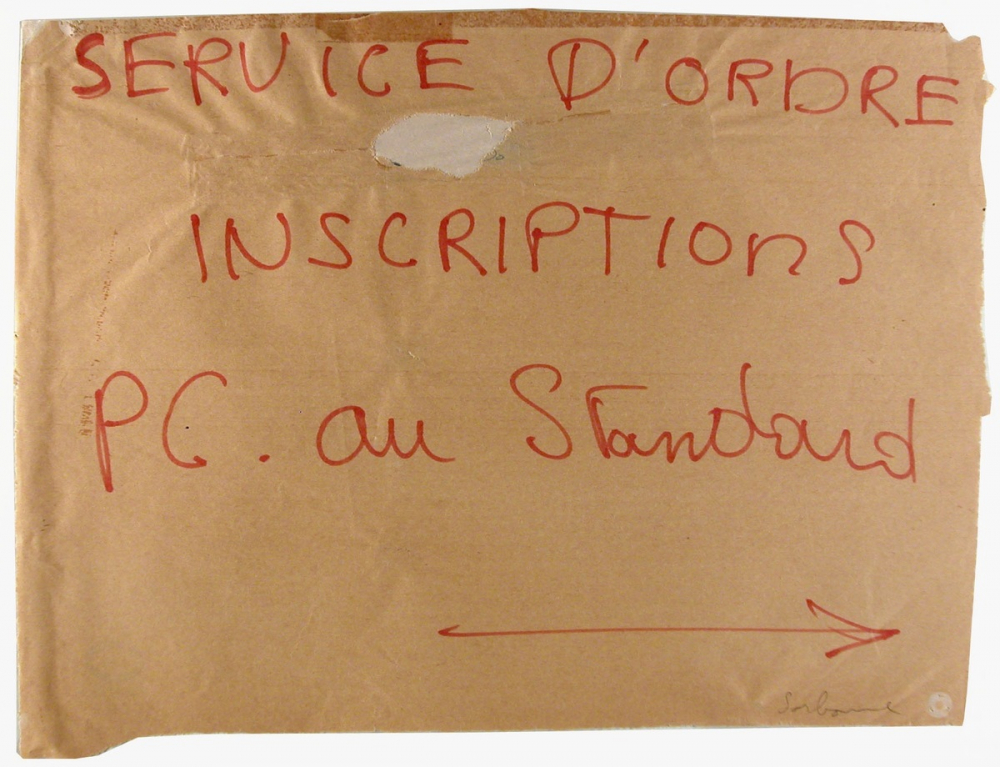 SERVICE D'ORDRE
INSCRIPTIONS
PC. au Standard
Sorbonne